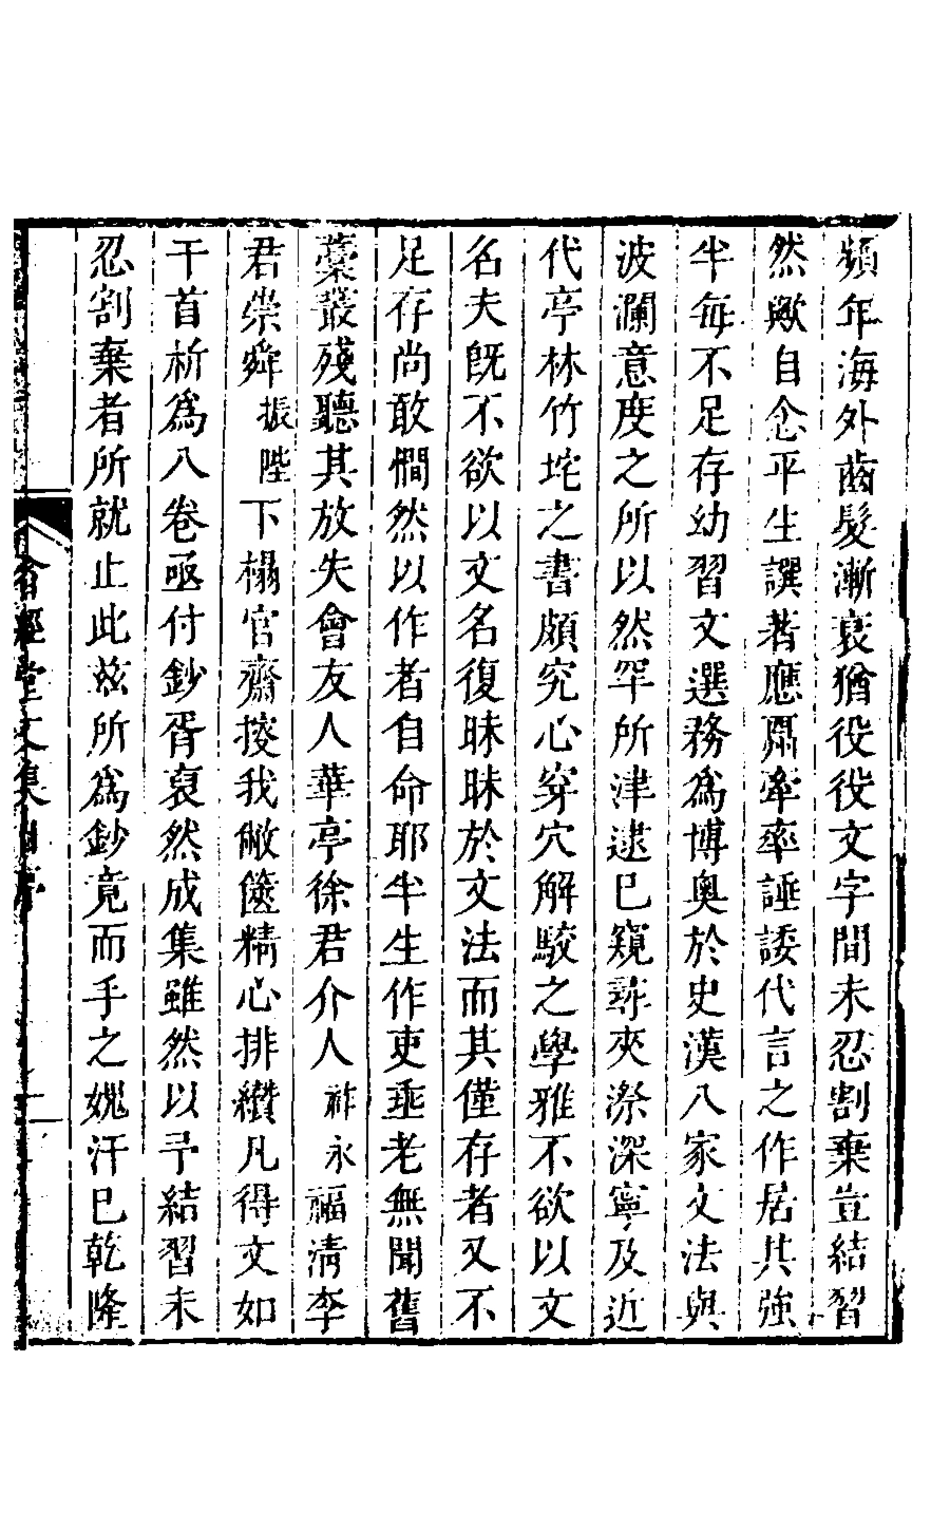 頻年海外齒髮漸衰猶役役文字間未忍割棄豈結習
然歟自念平生譔著應酬牽率諈諉代言之作居其強
半每不足存幼習文選務為博奧於史漢八家文法與
波瀾意度之所以然罕所津逮已窺尋夾漈深寧及近
代亭林竹垞之書頗究心穿穴解駮之學雅不欲以文
名夫旣不欲以文名復昧昧於文法而其僅存者又不
足存尚敢憪然以作者自命耶半生作吏垂老無聞舊
藁叢殘聽其放失會友人華亭徐君介人祚永福淸李
君崇舜振陛下榻官齋搜我敝篋精心排纘凡得文如
干首析為八卷亟付鈔胥裒然成集雖然以予結習未
忍割棄者所就止此茲所為鈔竟而手之媿汗已乾隆
經堂文集